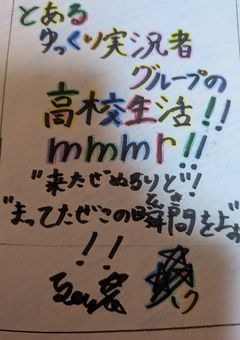 とある
ゆっくり実況者
グループの
高校生活!!
mmmr!!
"来たぜぬるりと"!
"まってたぜこの瞬間を"
とき
!!